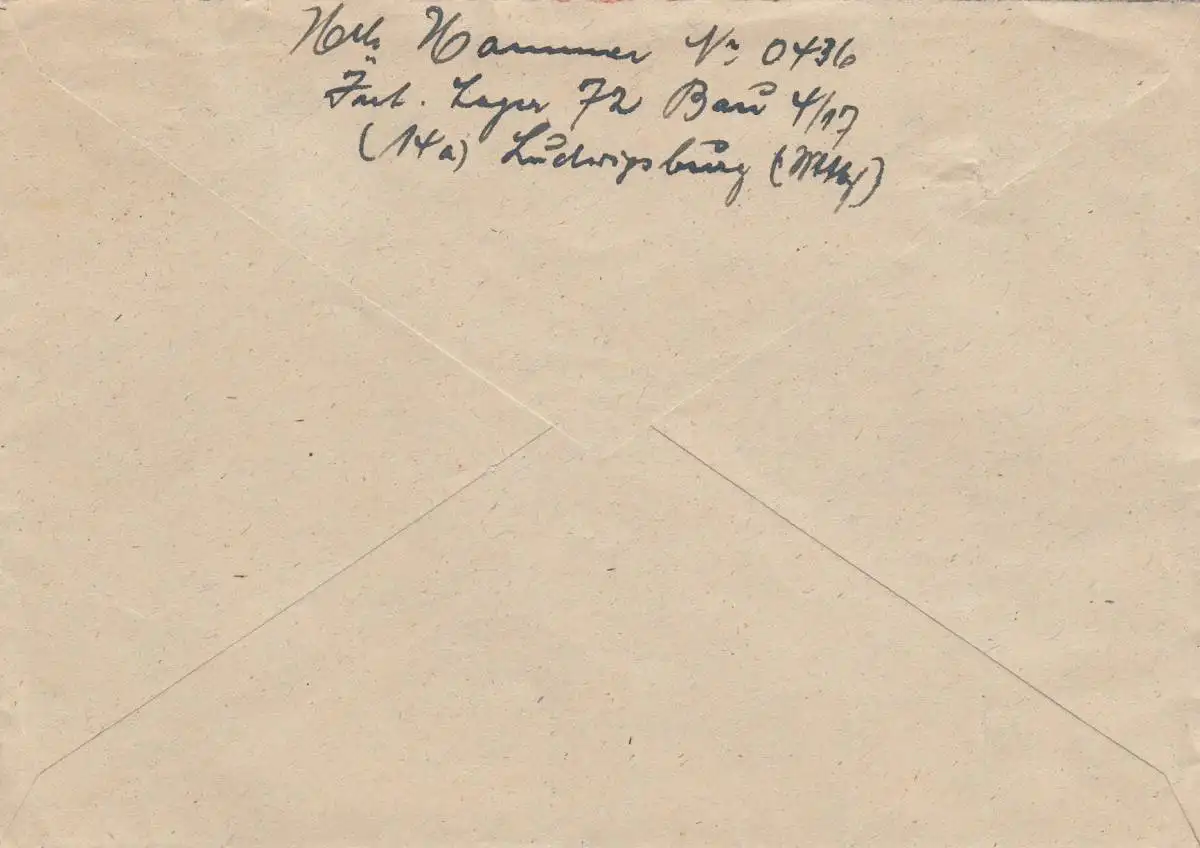 Hammer Nr. 0436
Int. Lager 72 Bau 4/17
(14a) Ludwigsburg (Wttbg)